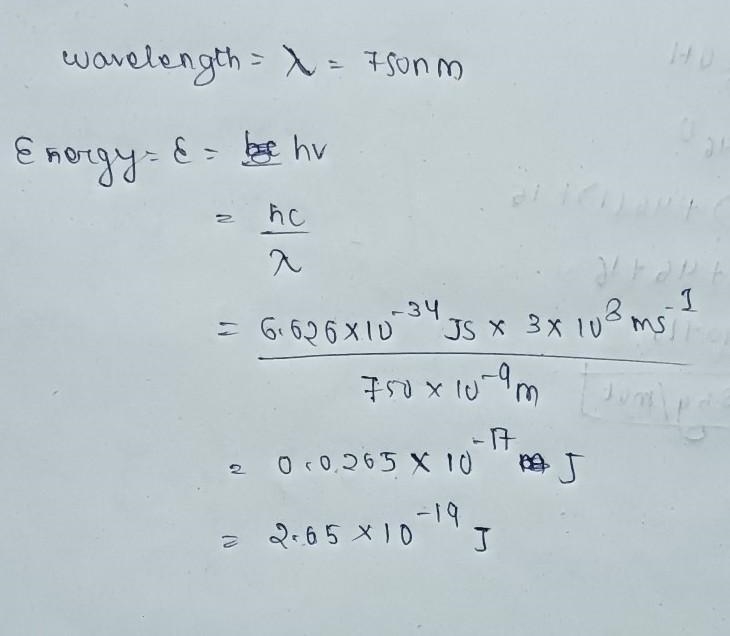 wavelength = λ = 750nm
Energy = E = hν
= hc
λ
= 6.626×10⁻³⁴ JS × 3×10⁸ ms⁻¹
750 × 10⁻⁹ m
= 0.0265 × 10⁻¹⁷ J
= 2.65 × 10⁻¹⁹ J